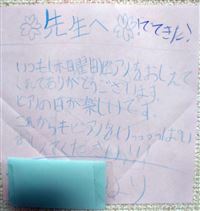 先生へ
いつも(木)曜日ピアノをおしえて
くれてありがとうございます。
ピアノの日が楽しいです
これからもピアノをいっぱい
おしえてください!!!